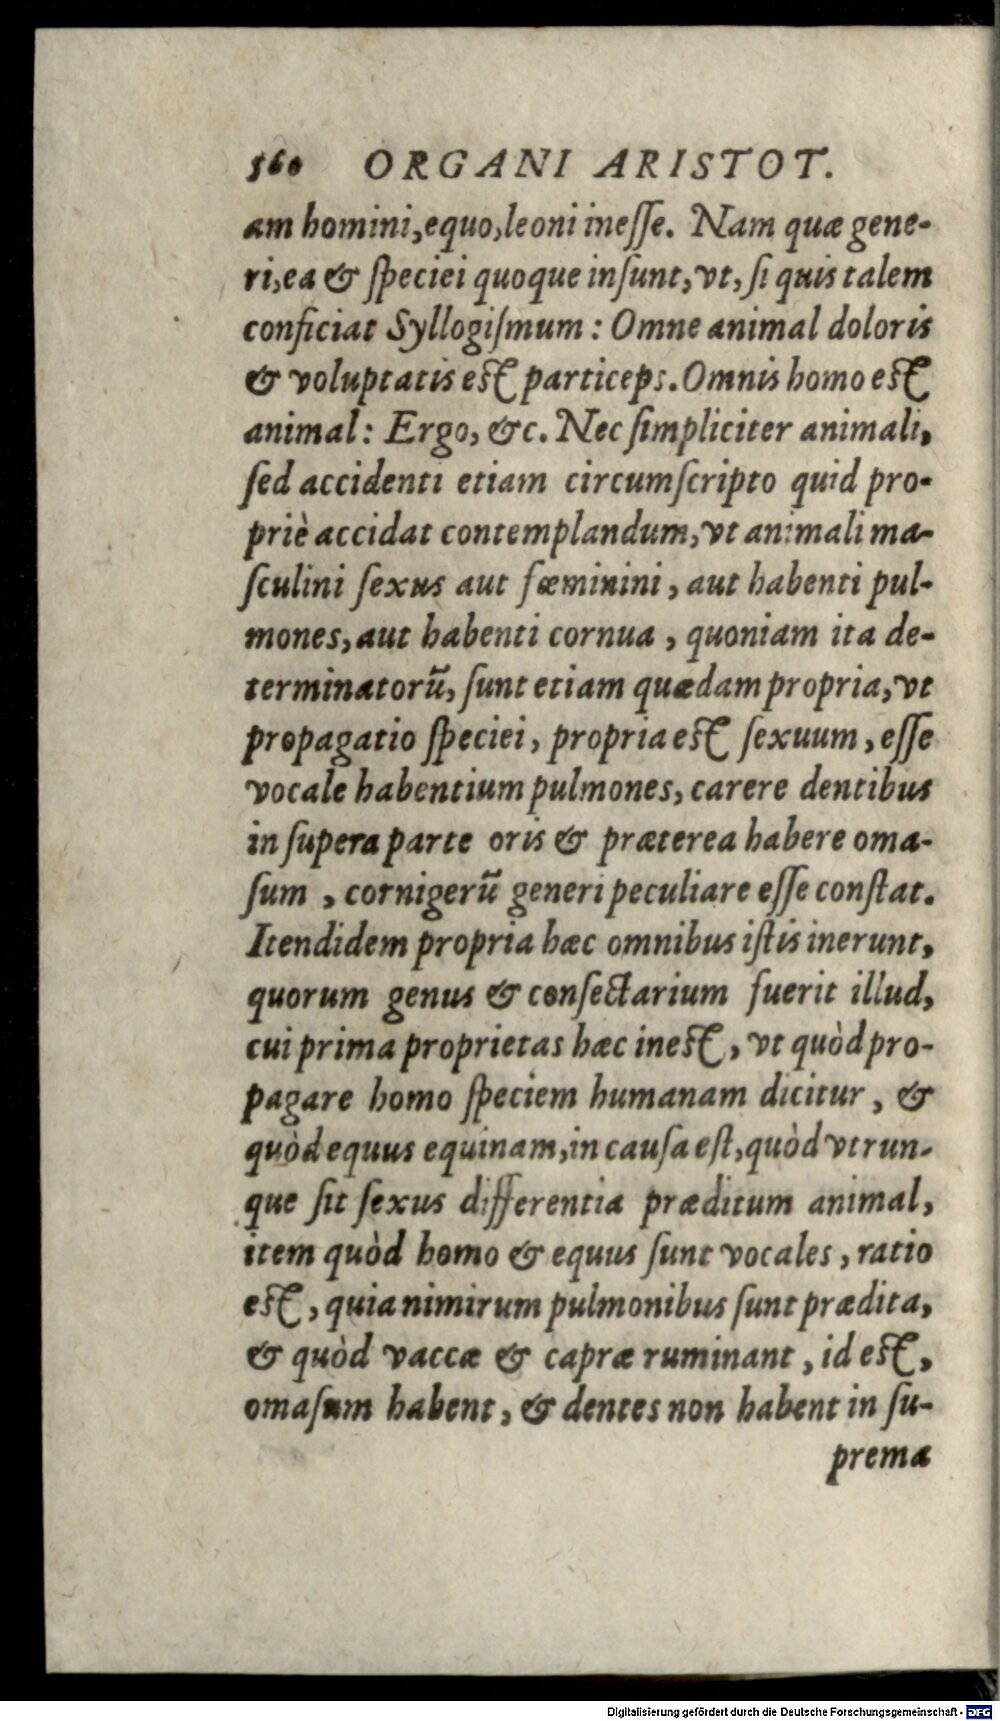 560 ORGANI ARISTOT.
am homini, equo, leoni ineſſe. Nam quæ gene-
ri, ea & ſpeciei quoque inſunt, vt, ſi quis talem
conficiat Syllogiſmum : Omne animal doloris
& voluptatis est particeps. Omnis homo est
animal : Ergo, &c. Nec ſimpliciter animali,
ſed accidenti etiam circumſcripto quid pro-
priè accidat contemplandum, vt animali ma-
ſculini ſexus aut fœminini, aut habenti pul-
mones, aut habenti cornua, quoniam ita de-
terminatorũ, ſunt etiam quædam propria, vt
propagatio ſpeciei, propria est ſexuum, eſſe
vocale habentium pulmones, carere dentibus
in ſupera parte oris & præterea habere oma-
ſum, cornigerũ generi peculiare eſſe conſtat.
Itendidem propria hæc omnibus iſtis inerunt,
quorum genus & conſectarium fuerit illud,
cui prima proprietas hæc inest, vt quòd pro-
pagare homo ſpeciem humanam dicitur, &
quòd equus equinam, in cauſa eſt, quòd vtrun-
que ſit ſexus differentia præditum animal,
item quòd homo & equus ſunt vocales, ratio
est, quia nimirum pulmonibus ſunt prædita,
& quòd vaccæ & capræ ruminant, id est,
omaſum habent, & dentes non habent in ſu-
prema
Digitalisierung gefördert durch die Deutsche Forschungsgemeinschaft - DFG